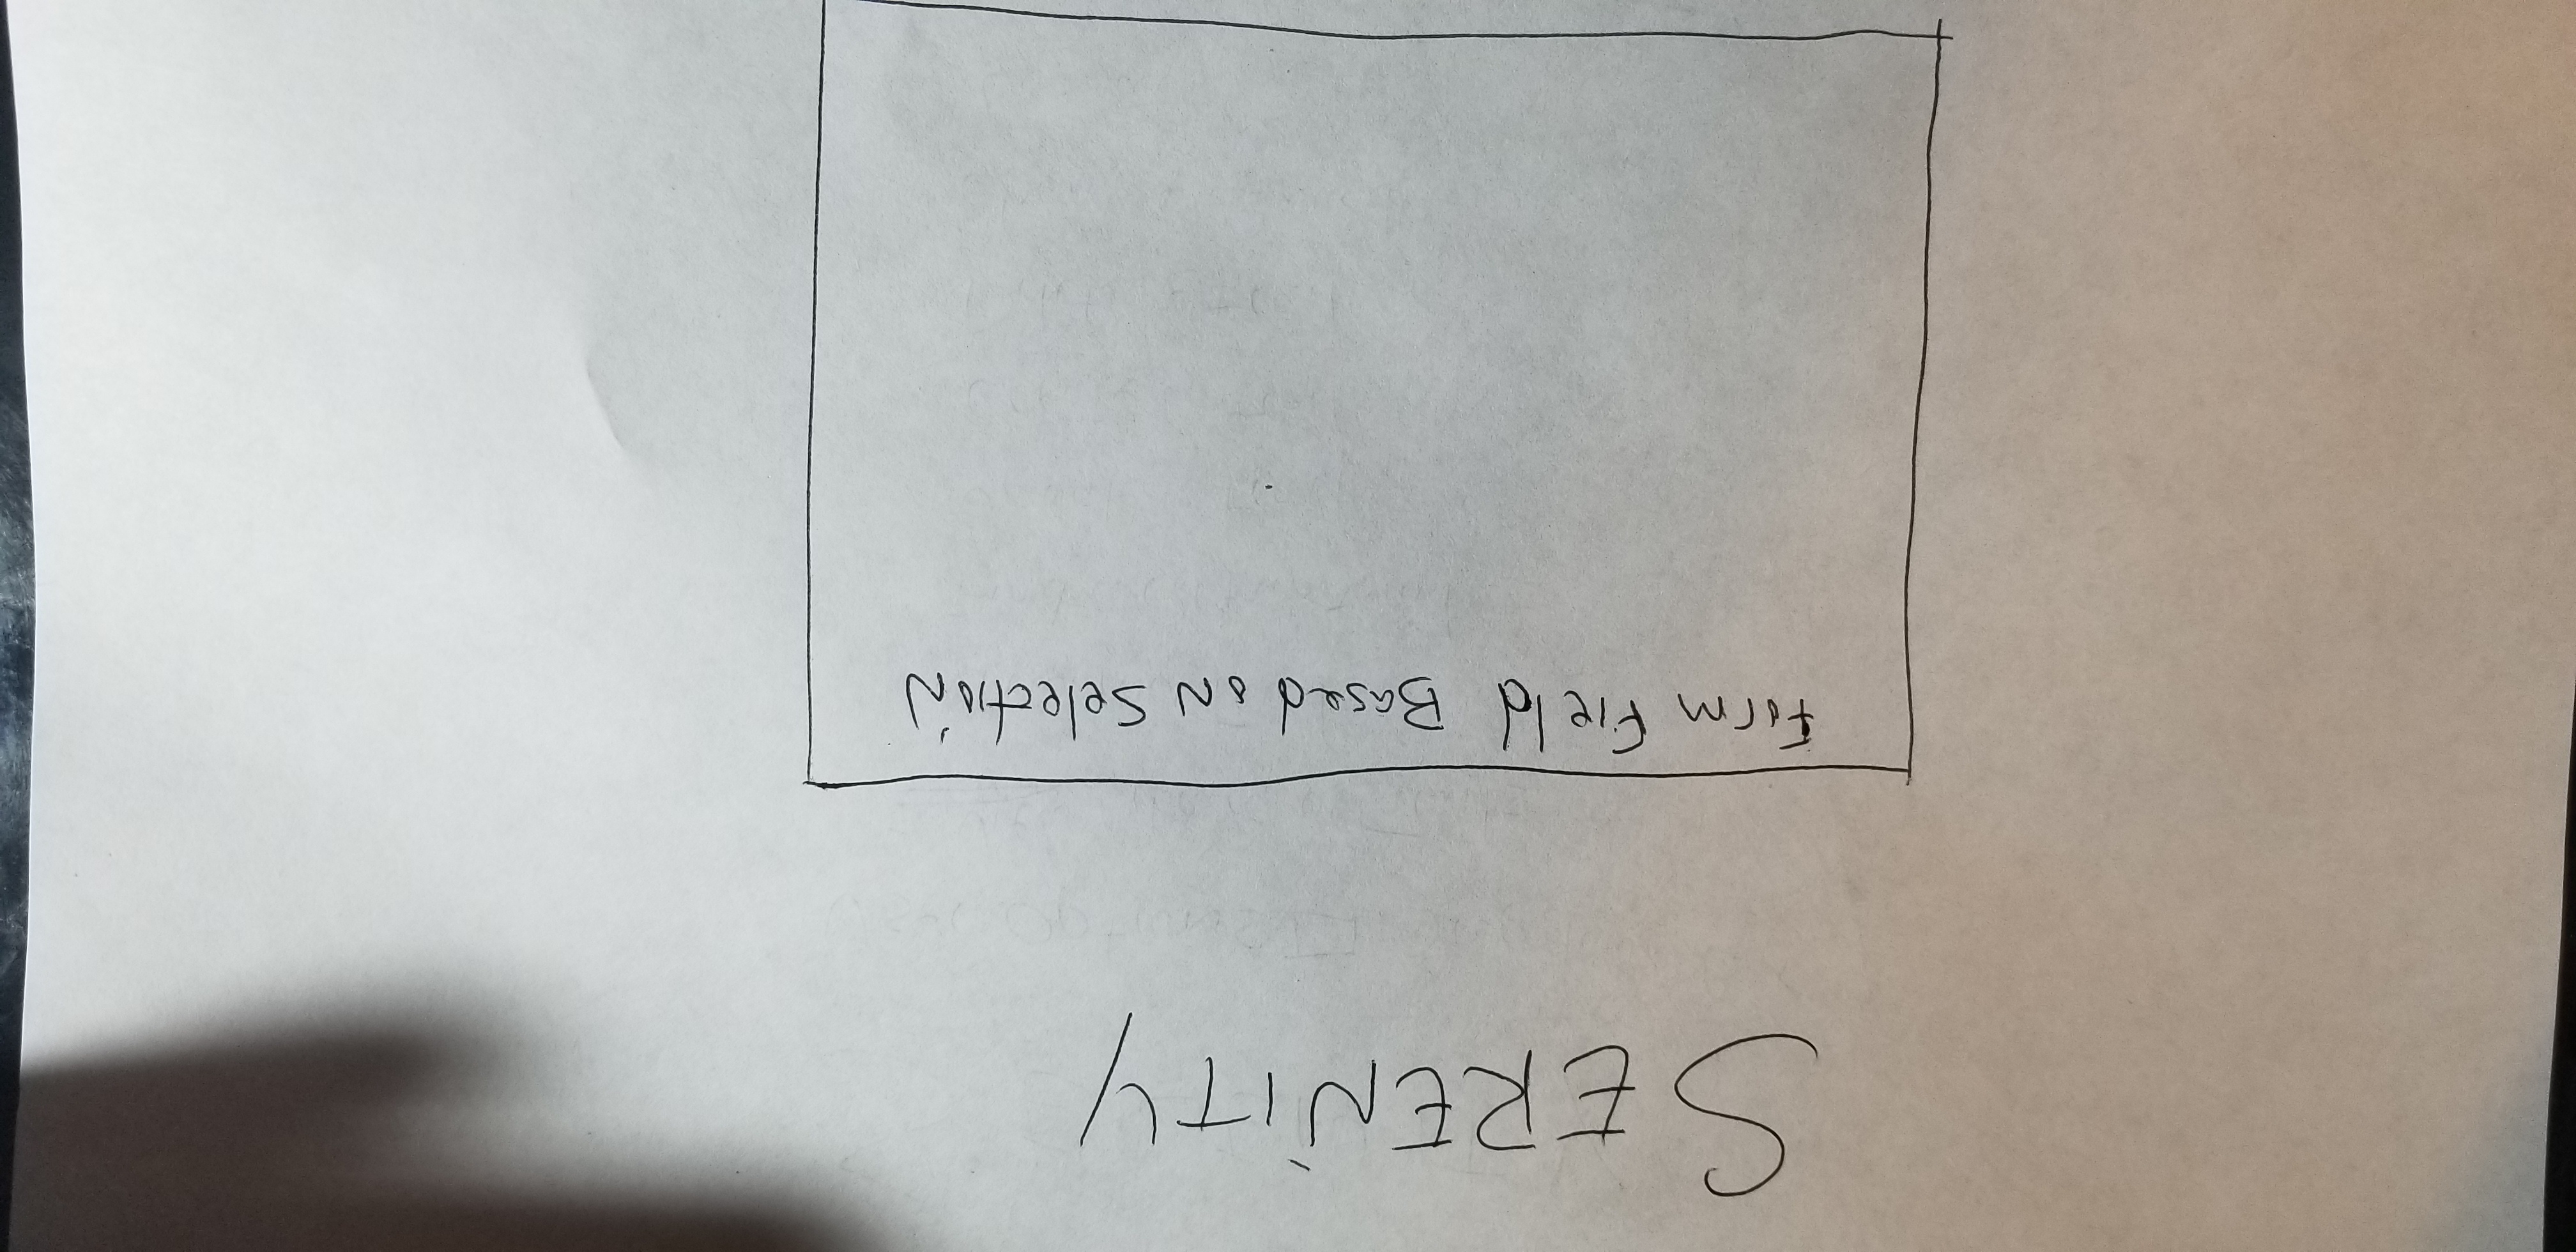 SERENITY
Form Field Based on Selection